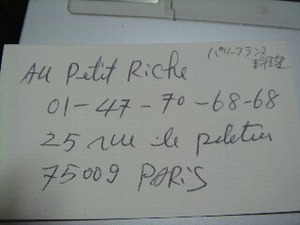 Au Petit Riche
パリーフランス
料理屋
01-47-70-68-68
25 rue le peletier
75009 PARIS